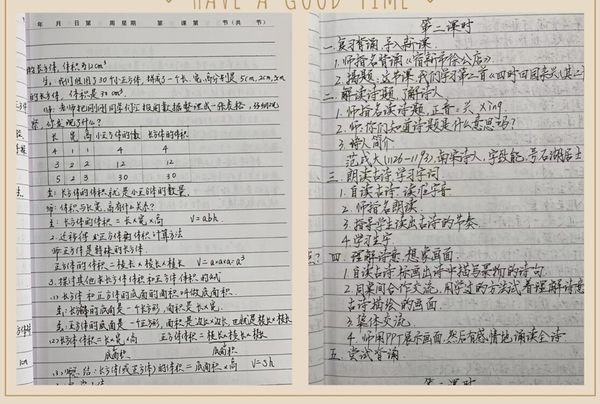 HAVE A GOOD TIME
年 月 日 第 周 星期 第 课 第 节(共 节)
的长方体,体积为12cm³
生:我们组用了30个小正方体,摆成了一个长、宽、高分别是5cm,2cm,3cm
的长方体,体积是30cm³。
师:老师把刚刚同学们汇报的数据整理成一张表格,仔细观
察,你发现了什么?
长 宽 高 小正方体的数 长方体的体积
4 1 1 4 4
3 2 2 12 12
5 2 3 30 30
生:长方体的体积就是小正方体的数量
师:体积与长宽,高有什么关系?
生:长方体的体积=长×宽×高 V=abh
2.迁移得出正方体的体积计算方法
师:正方体是特殊的长方体
正方体的体积=棱长×棱长×棱长 V=a×a×a=a³
3.探讨其他求长方体体积和正方体体积的公式
(1)长方体和正方体的底面的面积叫做底面积
生:长方体的底面是一个长方形,面积是长×宽。
生:正方体的底面是一个正方形,面积是边长×边长,也就是棱长×棱长
(2)长方体体积=长×宽×高 正方体体积=棱长×棱长×棱长
底面积 底面积
结:长方体(或正方体)的体积=底面积×高 V=Sh
第二课时
一.复习背诵,导入新课.
1.师指名背诵《宿新市徐公店》
2.揭题,这节课,我们学习第二首《四时田园杂兴(其二)
二.解读诗题,了解诗人
1.师指名读诗题,正音:兴 xìng
2.师:你们知道诗题是什么意思吗?
3.诗人简介
范成大(1126-1193),南宋诗人,字致能,号石湖居士
三.朗读古诗,学习字词
1.自读古诗,读准字音
2.师指名朗读.
3.指导学生读出古诗的节奏.
4.学习生字
四.理解诗意,想象画面.
1.自读古诗,标画出诗中描写景物的诗句.
2.同桌间合作交流,用学过的方法试着理解诗意
古诗描绘的画面.
3.集体交流
4.师用PPT展示画面,然后有感情地诵读全诗
五.尝试背诵
第二课时